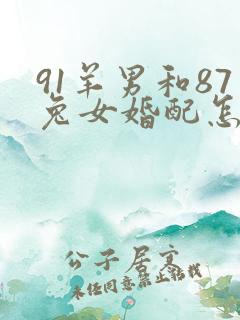 91羊男和87
兔女婚配怎
公子居京
未经同意禁止转载